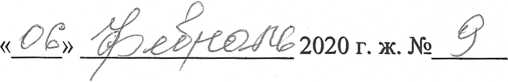 «06» февраль 2020 г. ж. № 9